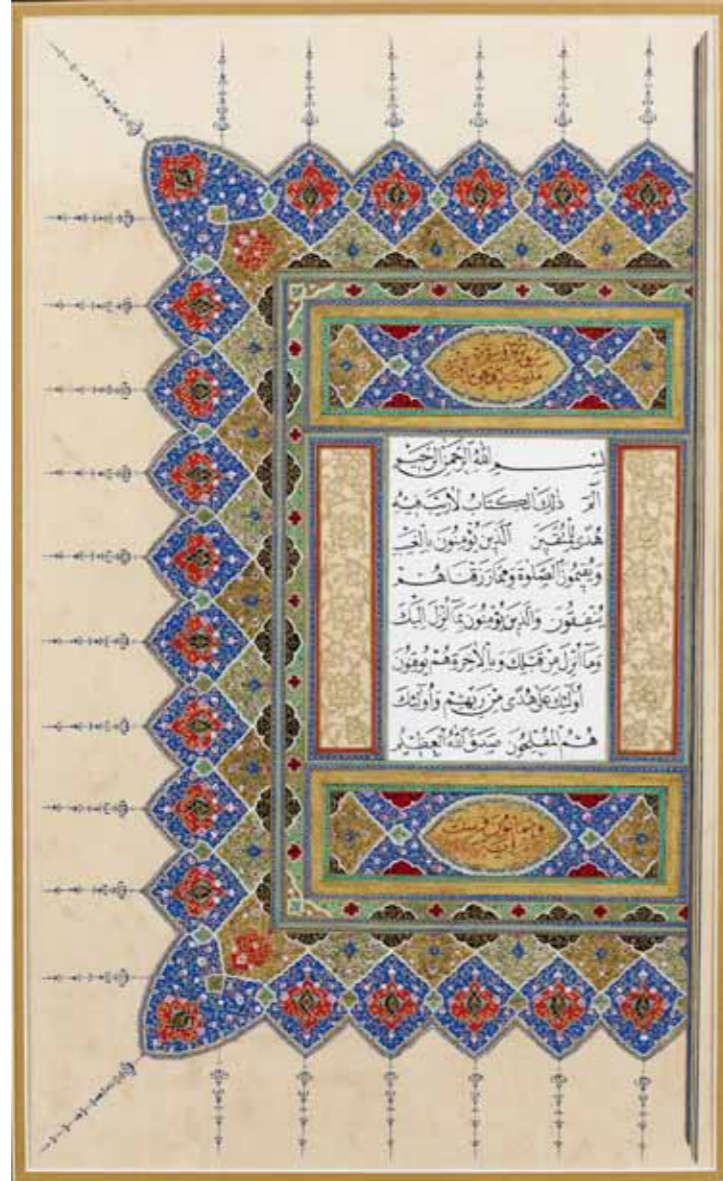 سورة البقرة
مدنية وهي
بِسْمِ اللهِ الرَّحْمٰنِ الرَّحِيمِ
الٓمٓ ذٰلِكَ الْكِتَابُ لَا رَيْبَ فِيهِ
هُدًى لِلْمُتَّقِينَ الَّذِينَ يُؤْمِنُونَ بِالْغَيْبِ
وَيُقِيمُونَ الصَّلٰوةَ وَمِمَّا رَزَقْنَاهُمْ
يُنْفِقُونَ وَالَّذِينَ يُؤْمِنُونَ بِمَا أُنْزِلَ إِلَيْكَ
وَمَا أُنْزِلَ مِنْ قَبْلِكَ وَبِالْأَخِرَةِ هُمْ يُوقِنُونَ
أُولٰئِكَ عَلٰى هُدًى مِنْ رَبِّهِمْ وَأُولٰئِكَ
هُمُ الْمُفْلِحُونَ صَدَقَ اللهُ الْعَظِيمُ
وثمانون وست
آيات